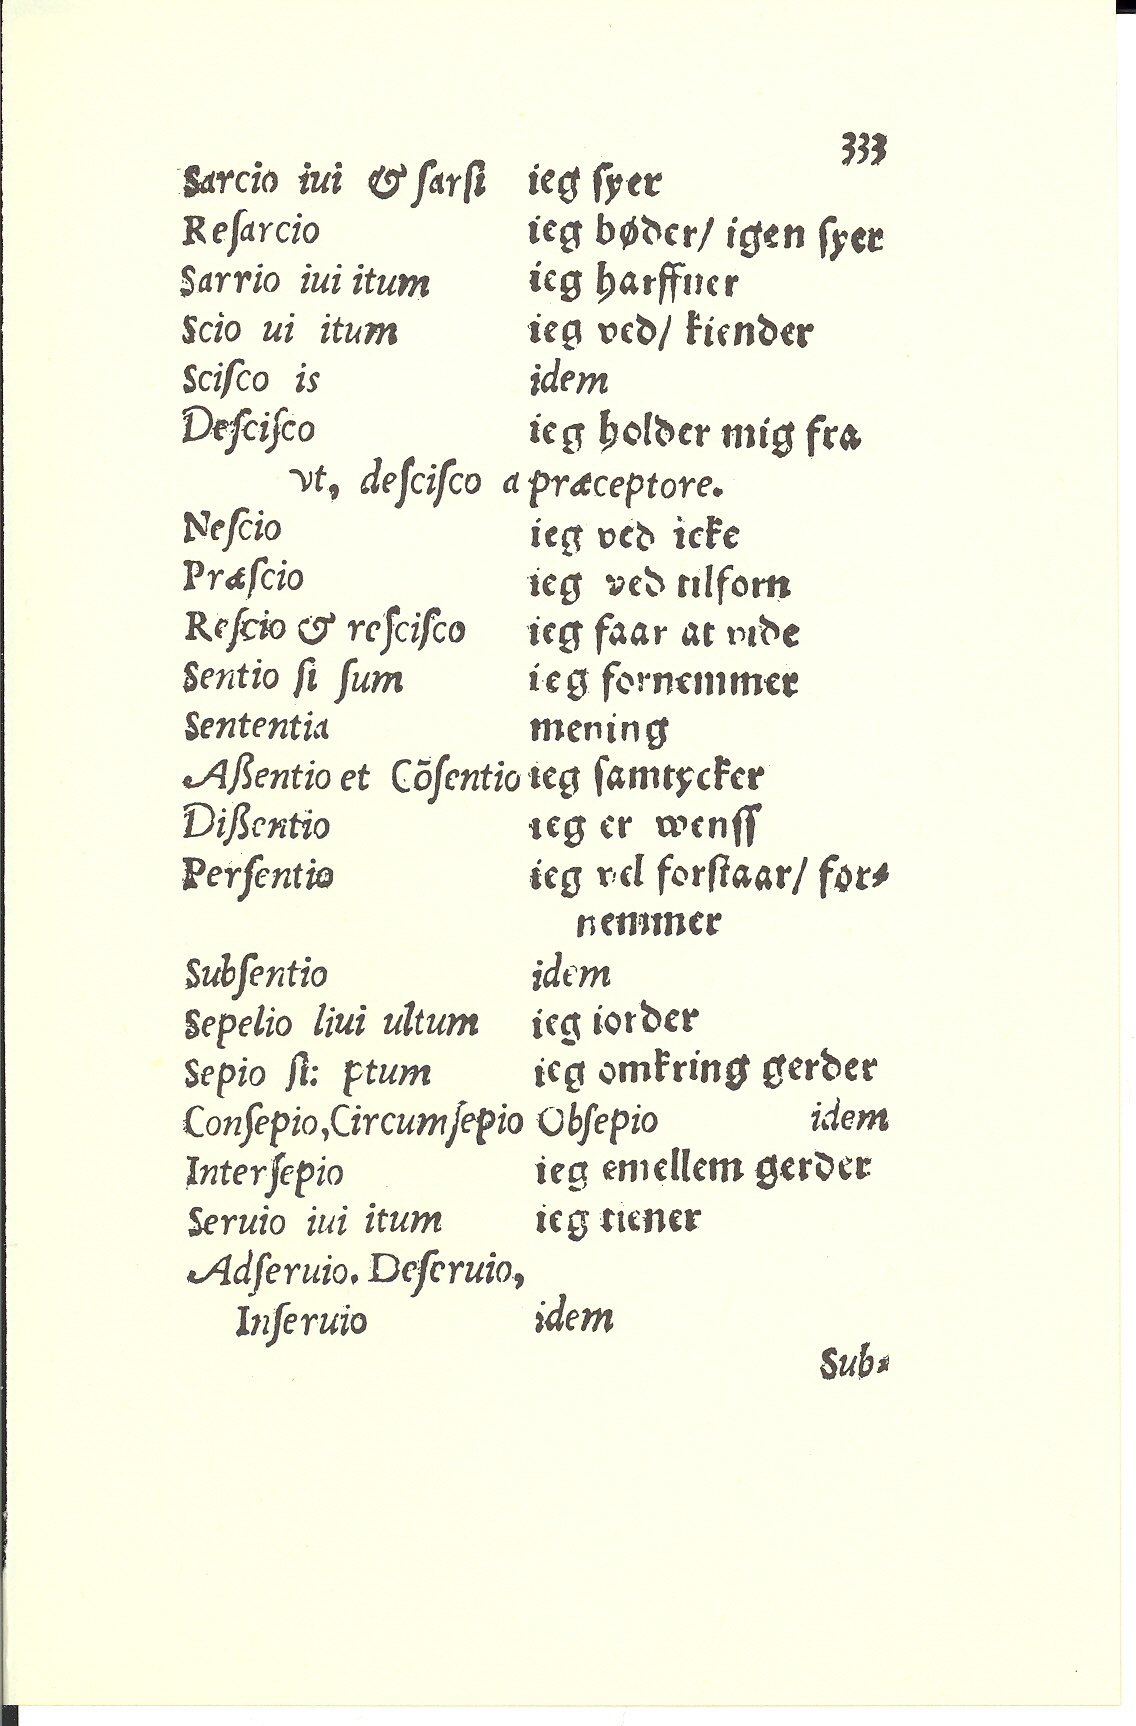 333
Sarcio iui & ſarſi ieg ſyer
Reſarcio ieg bøder/ igen ſyer
Sarrio iui itum ieg harffner
Scio ui itum ieg ved/ kiender
Sciſco is idem
Deſciſco ieg holder mig fra
vt, deſciſco a præceptore.
Neſcio ieg ved icke
Præſcio ieg ved tilforn
Reſcio & reſciſco ieg faar at vide
Sentio ſi ſum ieg fornemmer
Sententia mening
Aßentio et Cõſentio ieg ſamtycker
Dißentio ieg er wenſſ
Perſentio ieg vel forſtaar/ for⸗
nemmer
Subſentio idem
Sepelio liui ultum ieg iorder
Sepio ſi: ptum ieg omkring gerder
Conſepio, Circumſepio Obſepio idem
Interſepio ieg emellem gerder
Seruio iui itum ieg tiener
Adſeruio. Deſeruio,
Inſeruio idem
Sub⸗